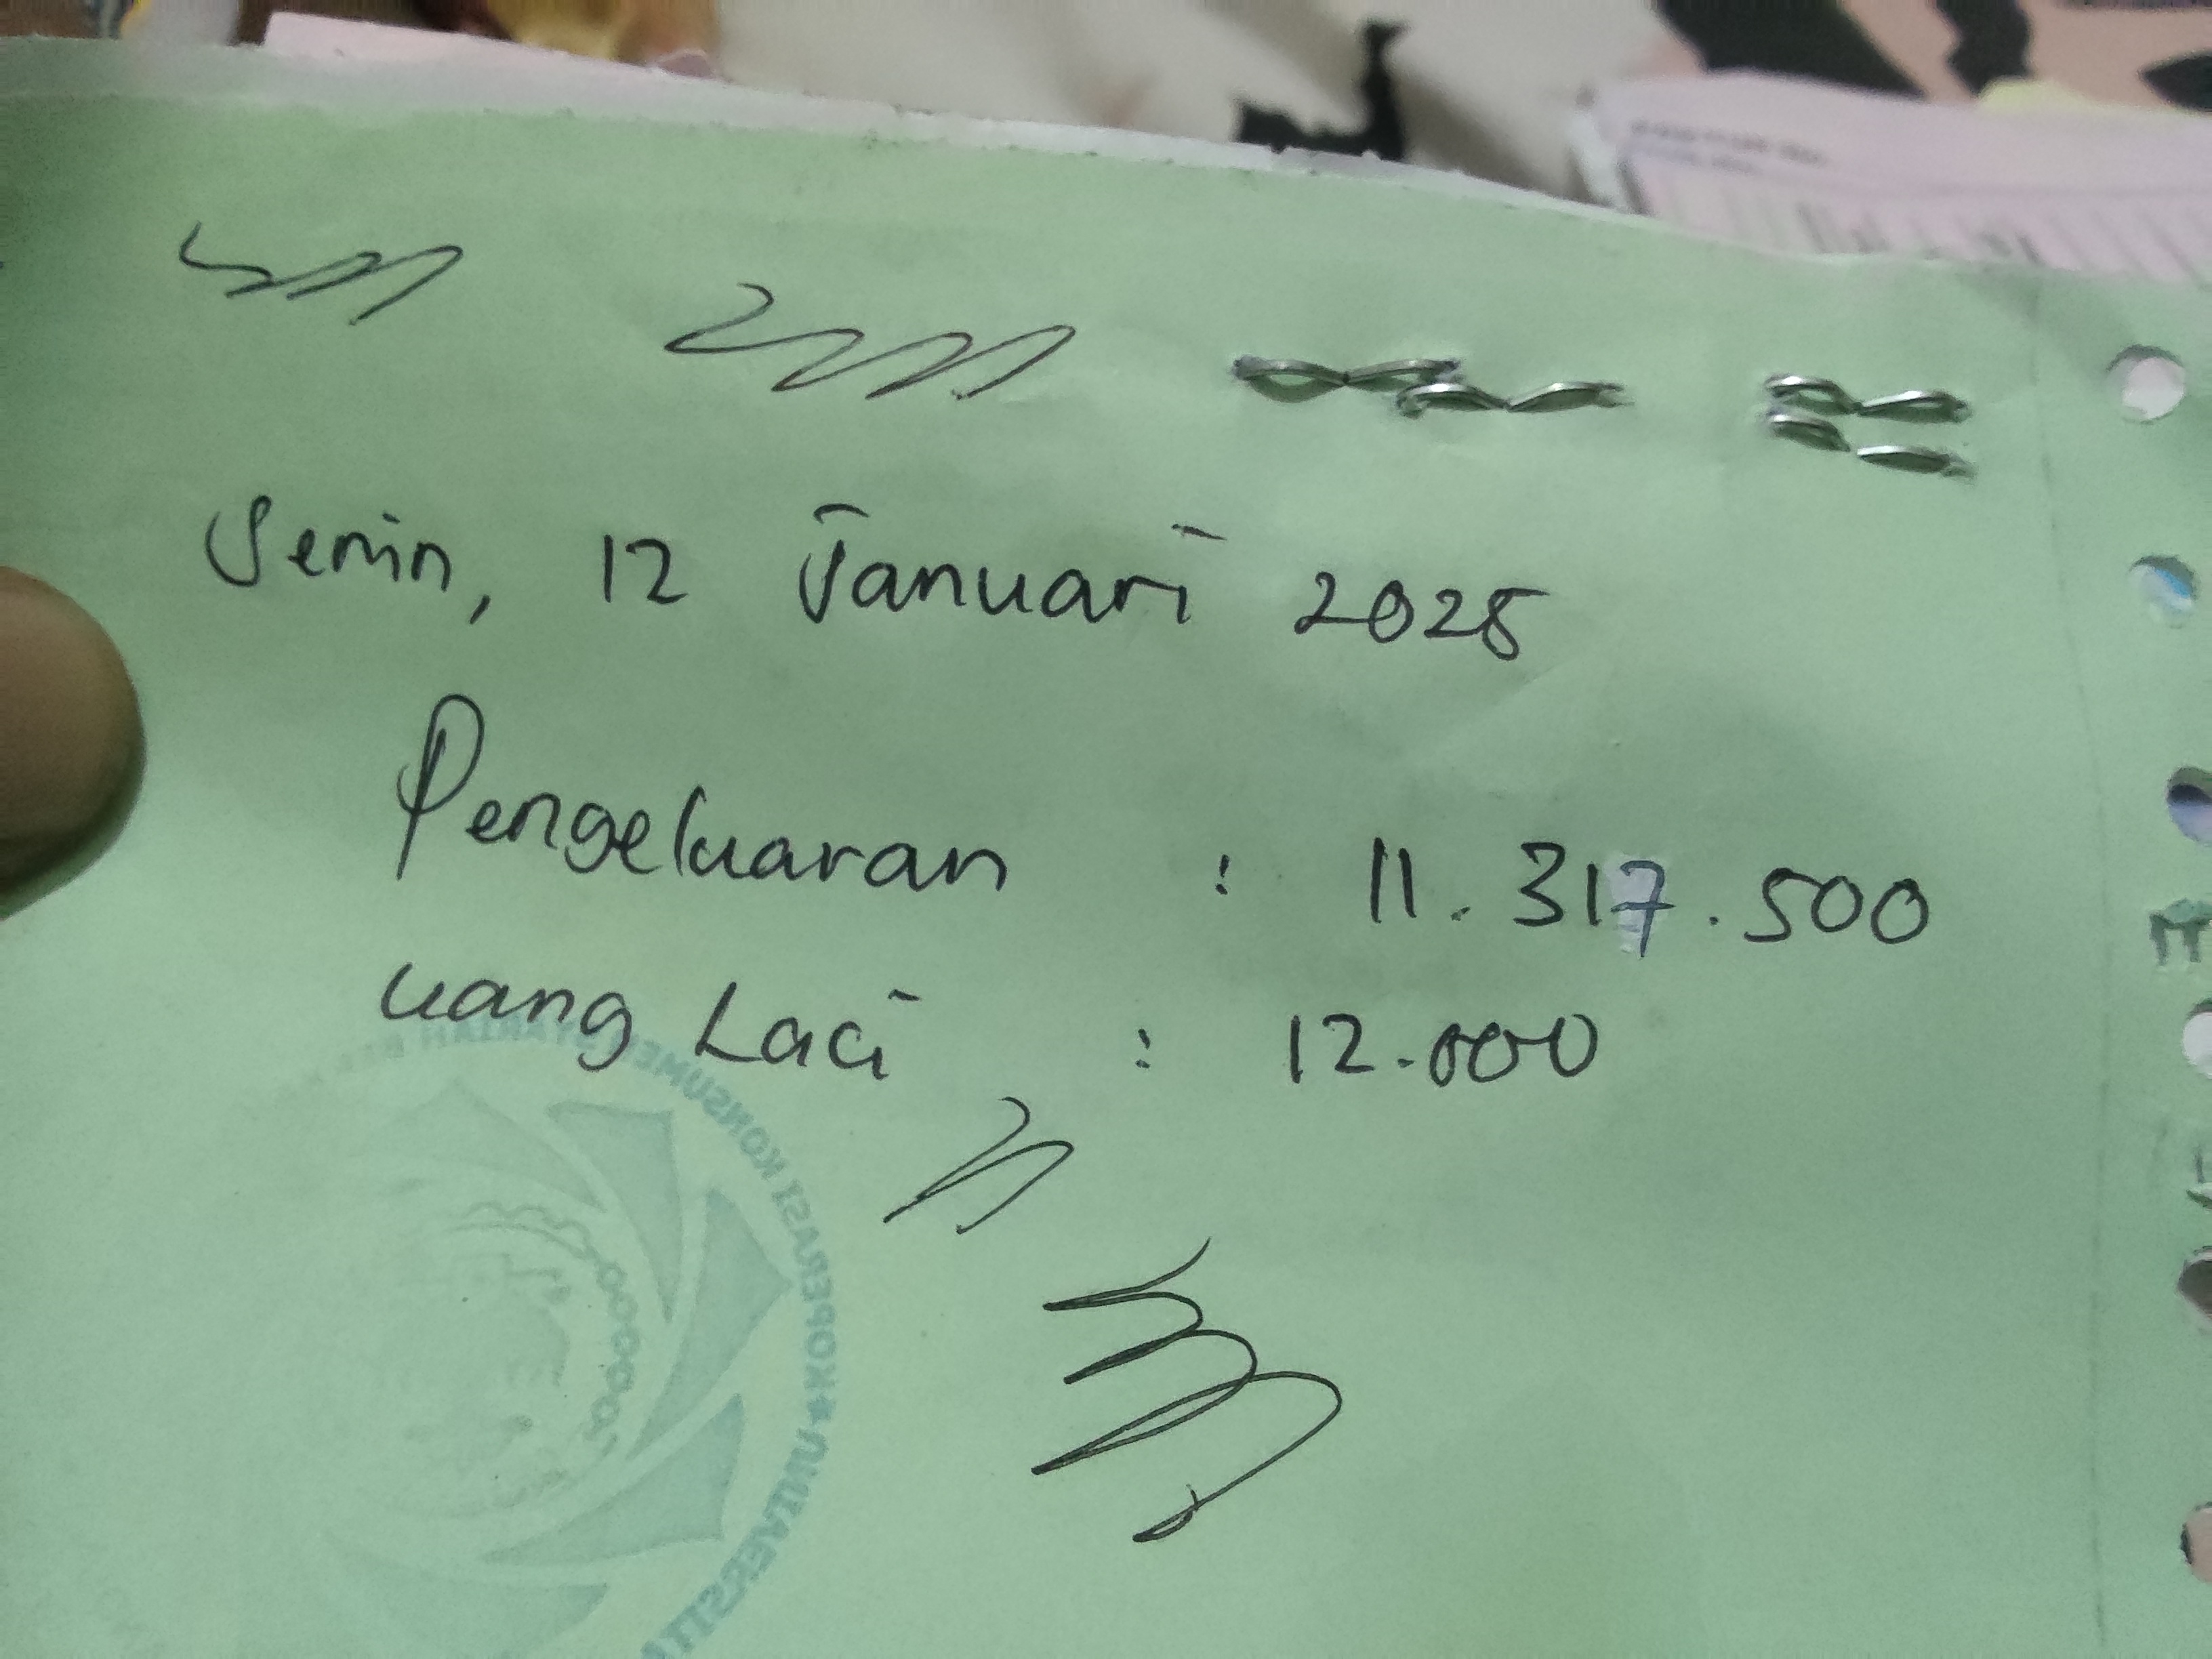 Senin, 12 Januari 2025
Pengeluaran : 11.317.500
uang Laci : 12.000
* KOPERASI KONSUMEN SYARIAH